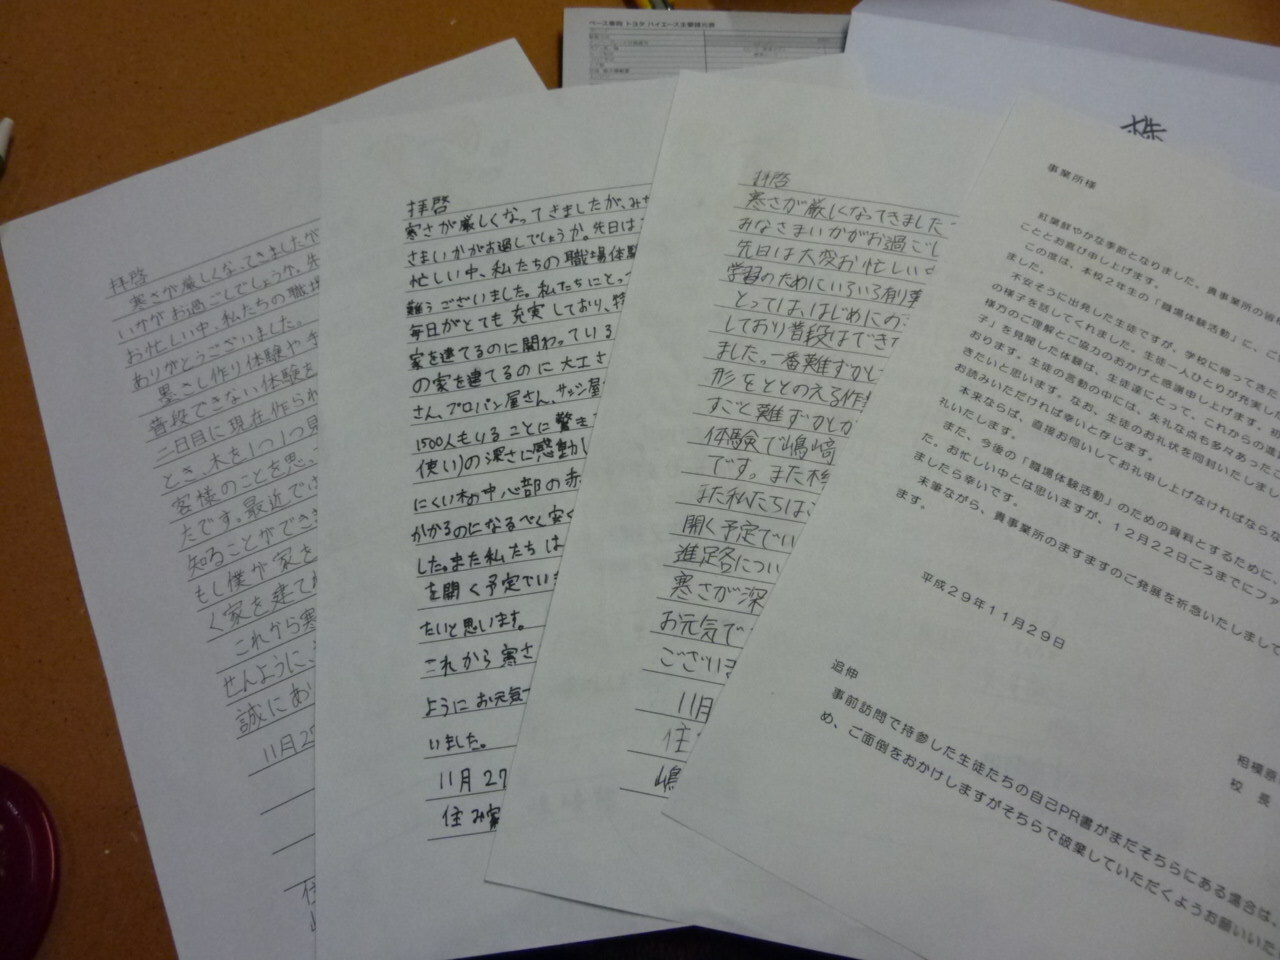 拝啓
寒さが厳しくなってきましたが
いかがお過ごしでしょうか。先
お忙しい中、私たちの職場
ありがとうございました。
普段できない体験を
二日目に現在作られ
とき、木を1つ1つ見
客様のことを思っ
たです。最近では
知ることができ
もし僕が家を
く家を建て
これから寒
せんように、
誠にあり
11月2
拝啓
寒さが厳しくなってきましたが、みな
さまいかがお過しでしょうか。先日は
忙しい中、私たちの職場体験
難うございました。私たちにとっ
毎日がとても充実しており、特
家を建てるのに関わっている
の家を建てるのに大工さ
さん、プロパン屋さん、サッシ屋
1500人もいることに驚き
使い)の深さに感動し
にくい木の中心部の赤
かかるのになるべく安く
した。また私たちは
を開く予定でい
たいと思います。
これから寒さ
ようにお元気で
いました。
11月27
住み家
拝啓
寒さが厳しくなってきました
みなさまいかがお過ごし
先日は大変お忙しい
学習のためにいろいろ有り
とっては、はじめての
しており普段はでき
ました。一番難ずかし
形をととのえる作業
すごく難ずかし
体験で嶋﨑
です。また
また私たちは
開く予定でい
進足各につい
寒さが深
お元気で
ございま
11月
住
嶋
株
事業所様
紅葉鮮やかな季節となりました、貴事業所の皆
こととお喜び申し上げます。
この度は、本校2年生の「職場体験活動」に、ご
ました。
不安そうに出発した生徒ですが、学校に帰ってきた
の様子を話してくれました。生徒一人ひとりが充実した
様方のご理解とご協力のおかげと感謝申し上げます。
子」を見聞した体験は、生徒達にとって、これからの進
おります。生徒の言動の中には、失礼な点も多々あった
きたいと思います。なお、生徒のお礼状を同封いたしまし
お読みいただければ幸いと存じます。
本来ならば、直接お伺いしてお礼申し上げなければならな
礼いたします。
また、今後の「職場体験活動」のための資料とするために、
た、お忙しい中とは思いますが、12月22日ごろまでにファ
ましたら幸いです。
末筆ながら、貴事業所のますますのご発展を祈念いたしまして
ます。
平成29年11月29日
相模原
校長
追伸
事前訪問で持参した生徒たちの自己PR書がまだそちらにある場合は、
め、ご面倒をおかけしますがそちらで破棄していただくようお願いいた